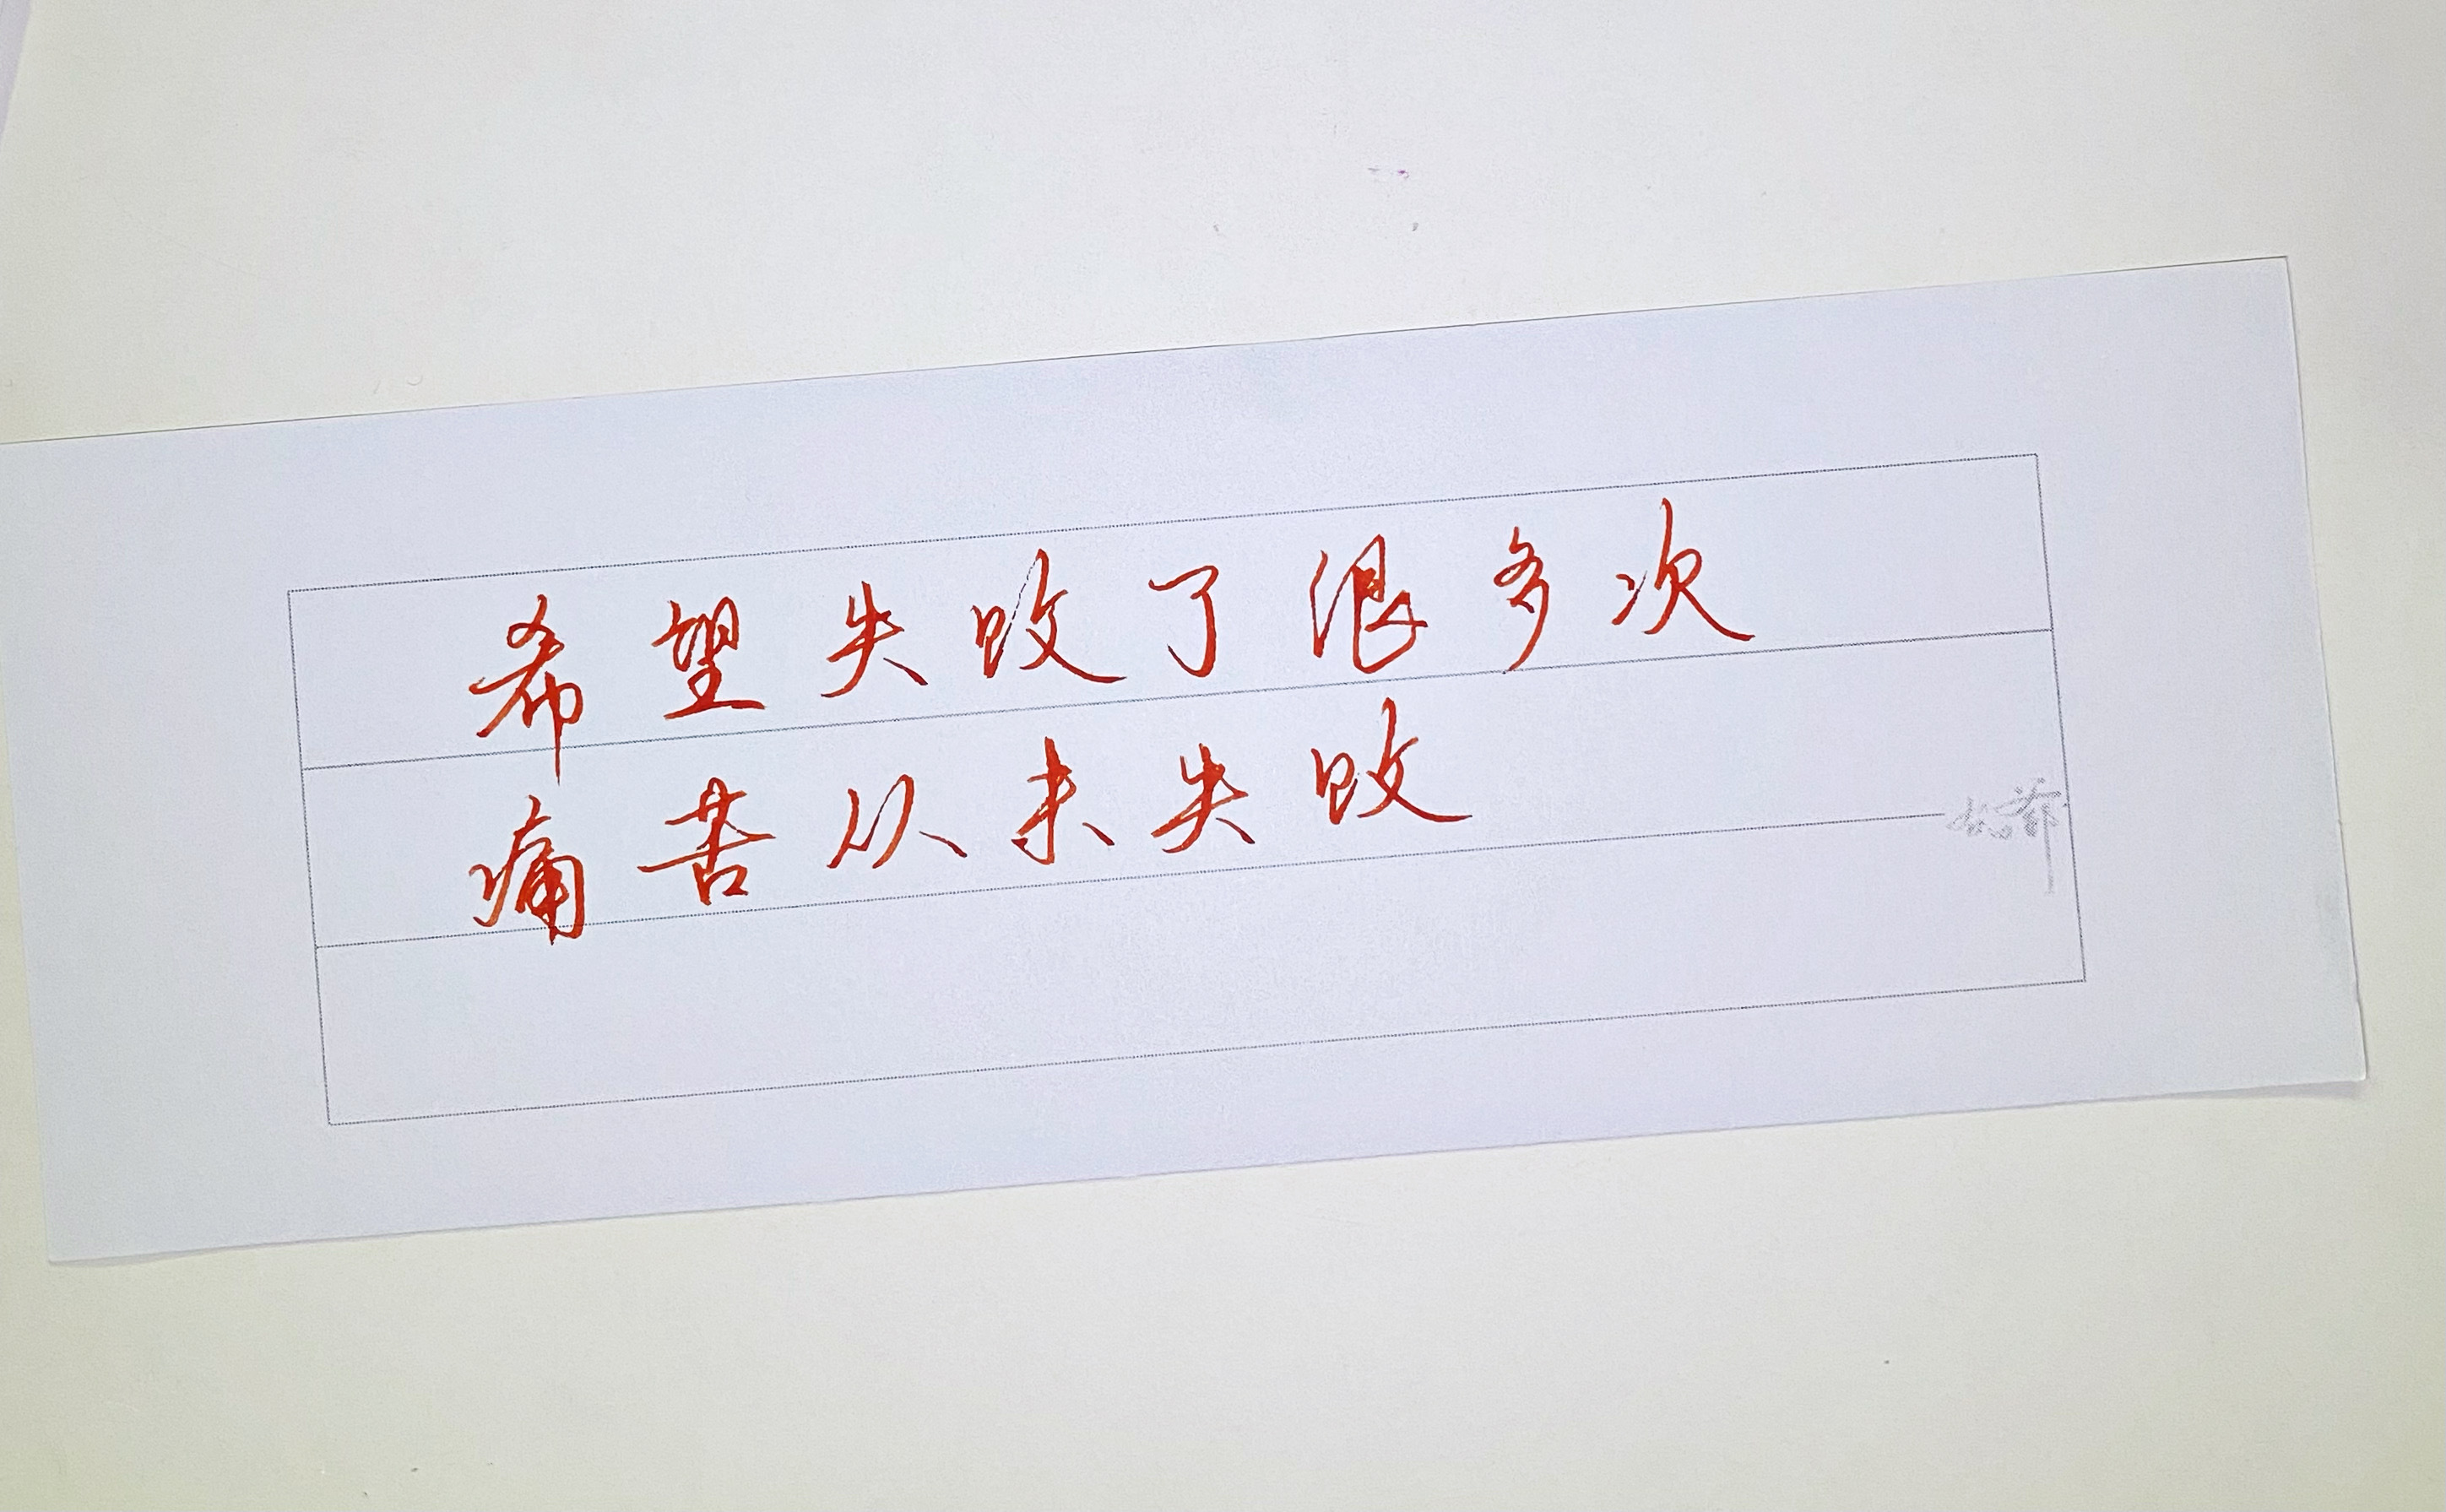 希望失败了很多次
痛苦从未失败